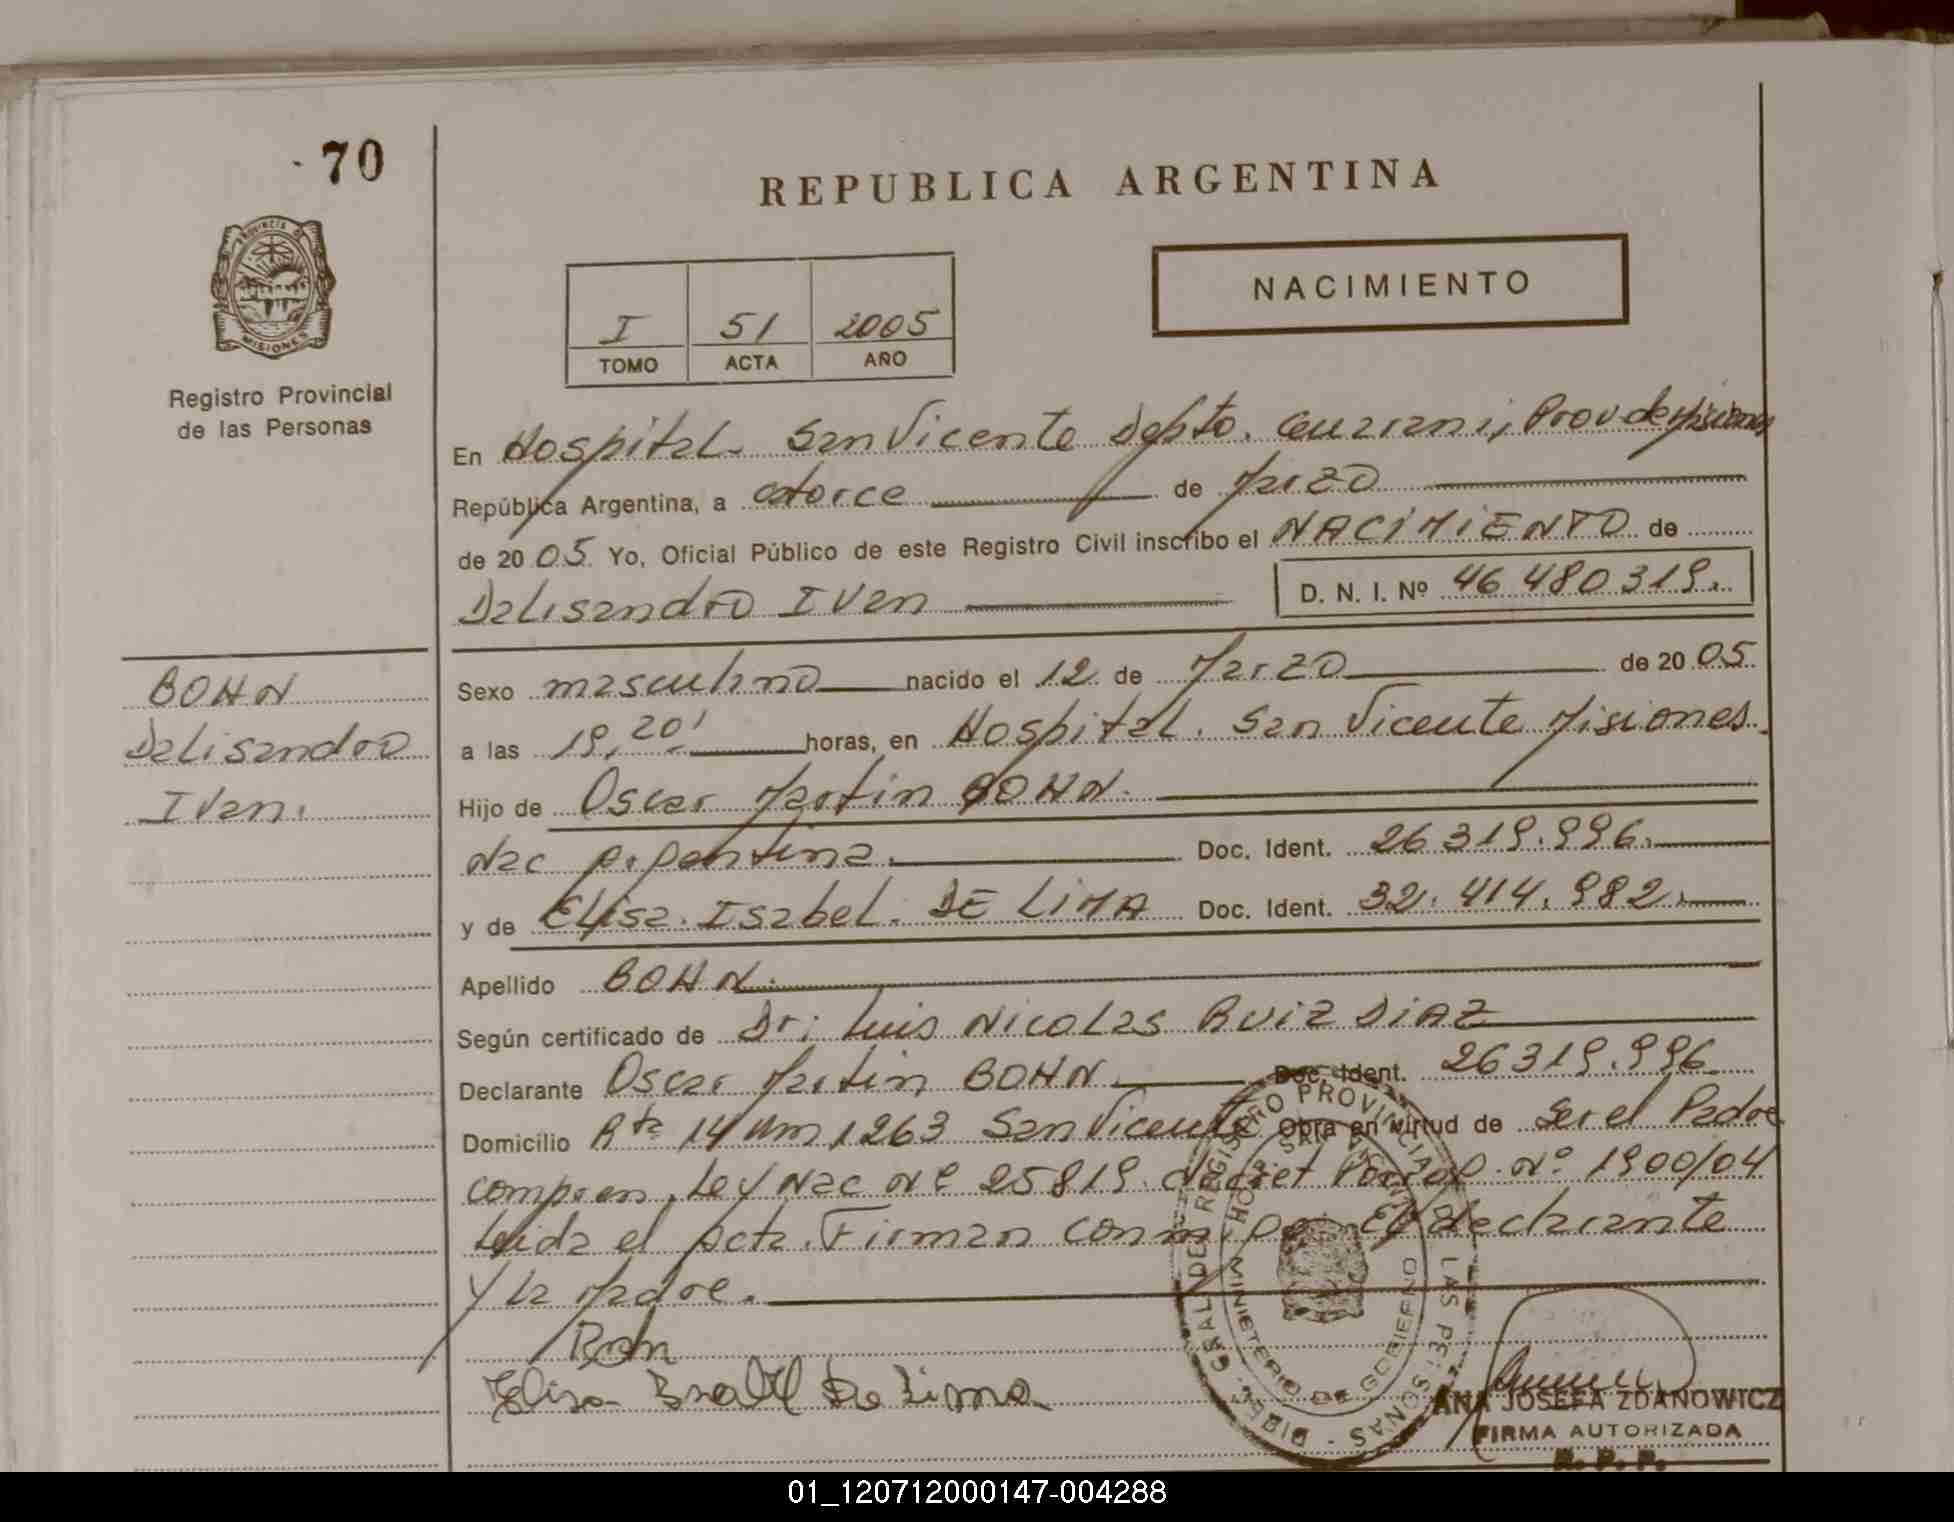 70
REPUBLICA ARGENTINA
PROVINCIA D
MISIONES
NACIMIENTO
I 51 2005
TOMO ACTA AÑO
Registro Provincial
de las Personas
En Hospital. San Vicente Depto. Guarani, Prov de Misiones
República Argentina, a catorce de Marzo
de 2005. Yo, Oficial Público de este Registro Civil inscribo el NACIMIENTO de
Dalisandro Ivan D. N. I. Nº 46 480 319.
BOHN
Dalisandro
Ivan.
Sexo masculino nacido el 12 de Marzo de 2005
a las 19,20' horas, en Hospital. San Vicente Misiones.
Hijo de Oscar Martin BOHN.
Nac Argentina. Doc. Ident. 26 319.996.
y de Elisa. Isabel. DE LIMA Doc. Ident. 32. 414. 982.
Apellido BOHN.
Según certificado de Dr: Luis Nicolas RUIZ DIAZ
Declarante Oscar Martin BOHN Doc. Ident. 26 319.996
Domicilio Rta 14 Km 1263 San Vicente Obra en virtud de Ser el Padre
Ley Nac Nº 25819. Nº 1900/04
Leida el Acta. Firman conmigo El declarante
y la Madre.
Bohn
Elisa Isabel De Lima
DIREC. GRAL. DE REGISTRO PROVINCIAL LAS PERSONAS
MINISTERIO DE GOBIERNO
ANA JOSEFA ZDANOWICZ
FIRMA AUTORIZADA
R. P. P.
01_120712000147-004288